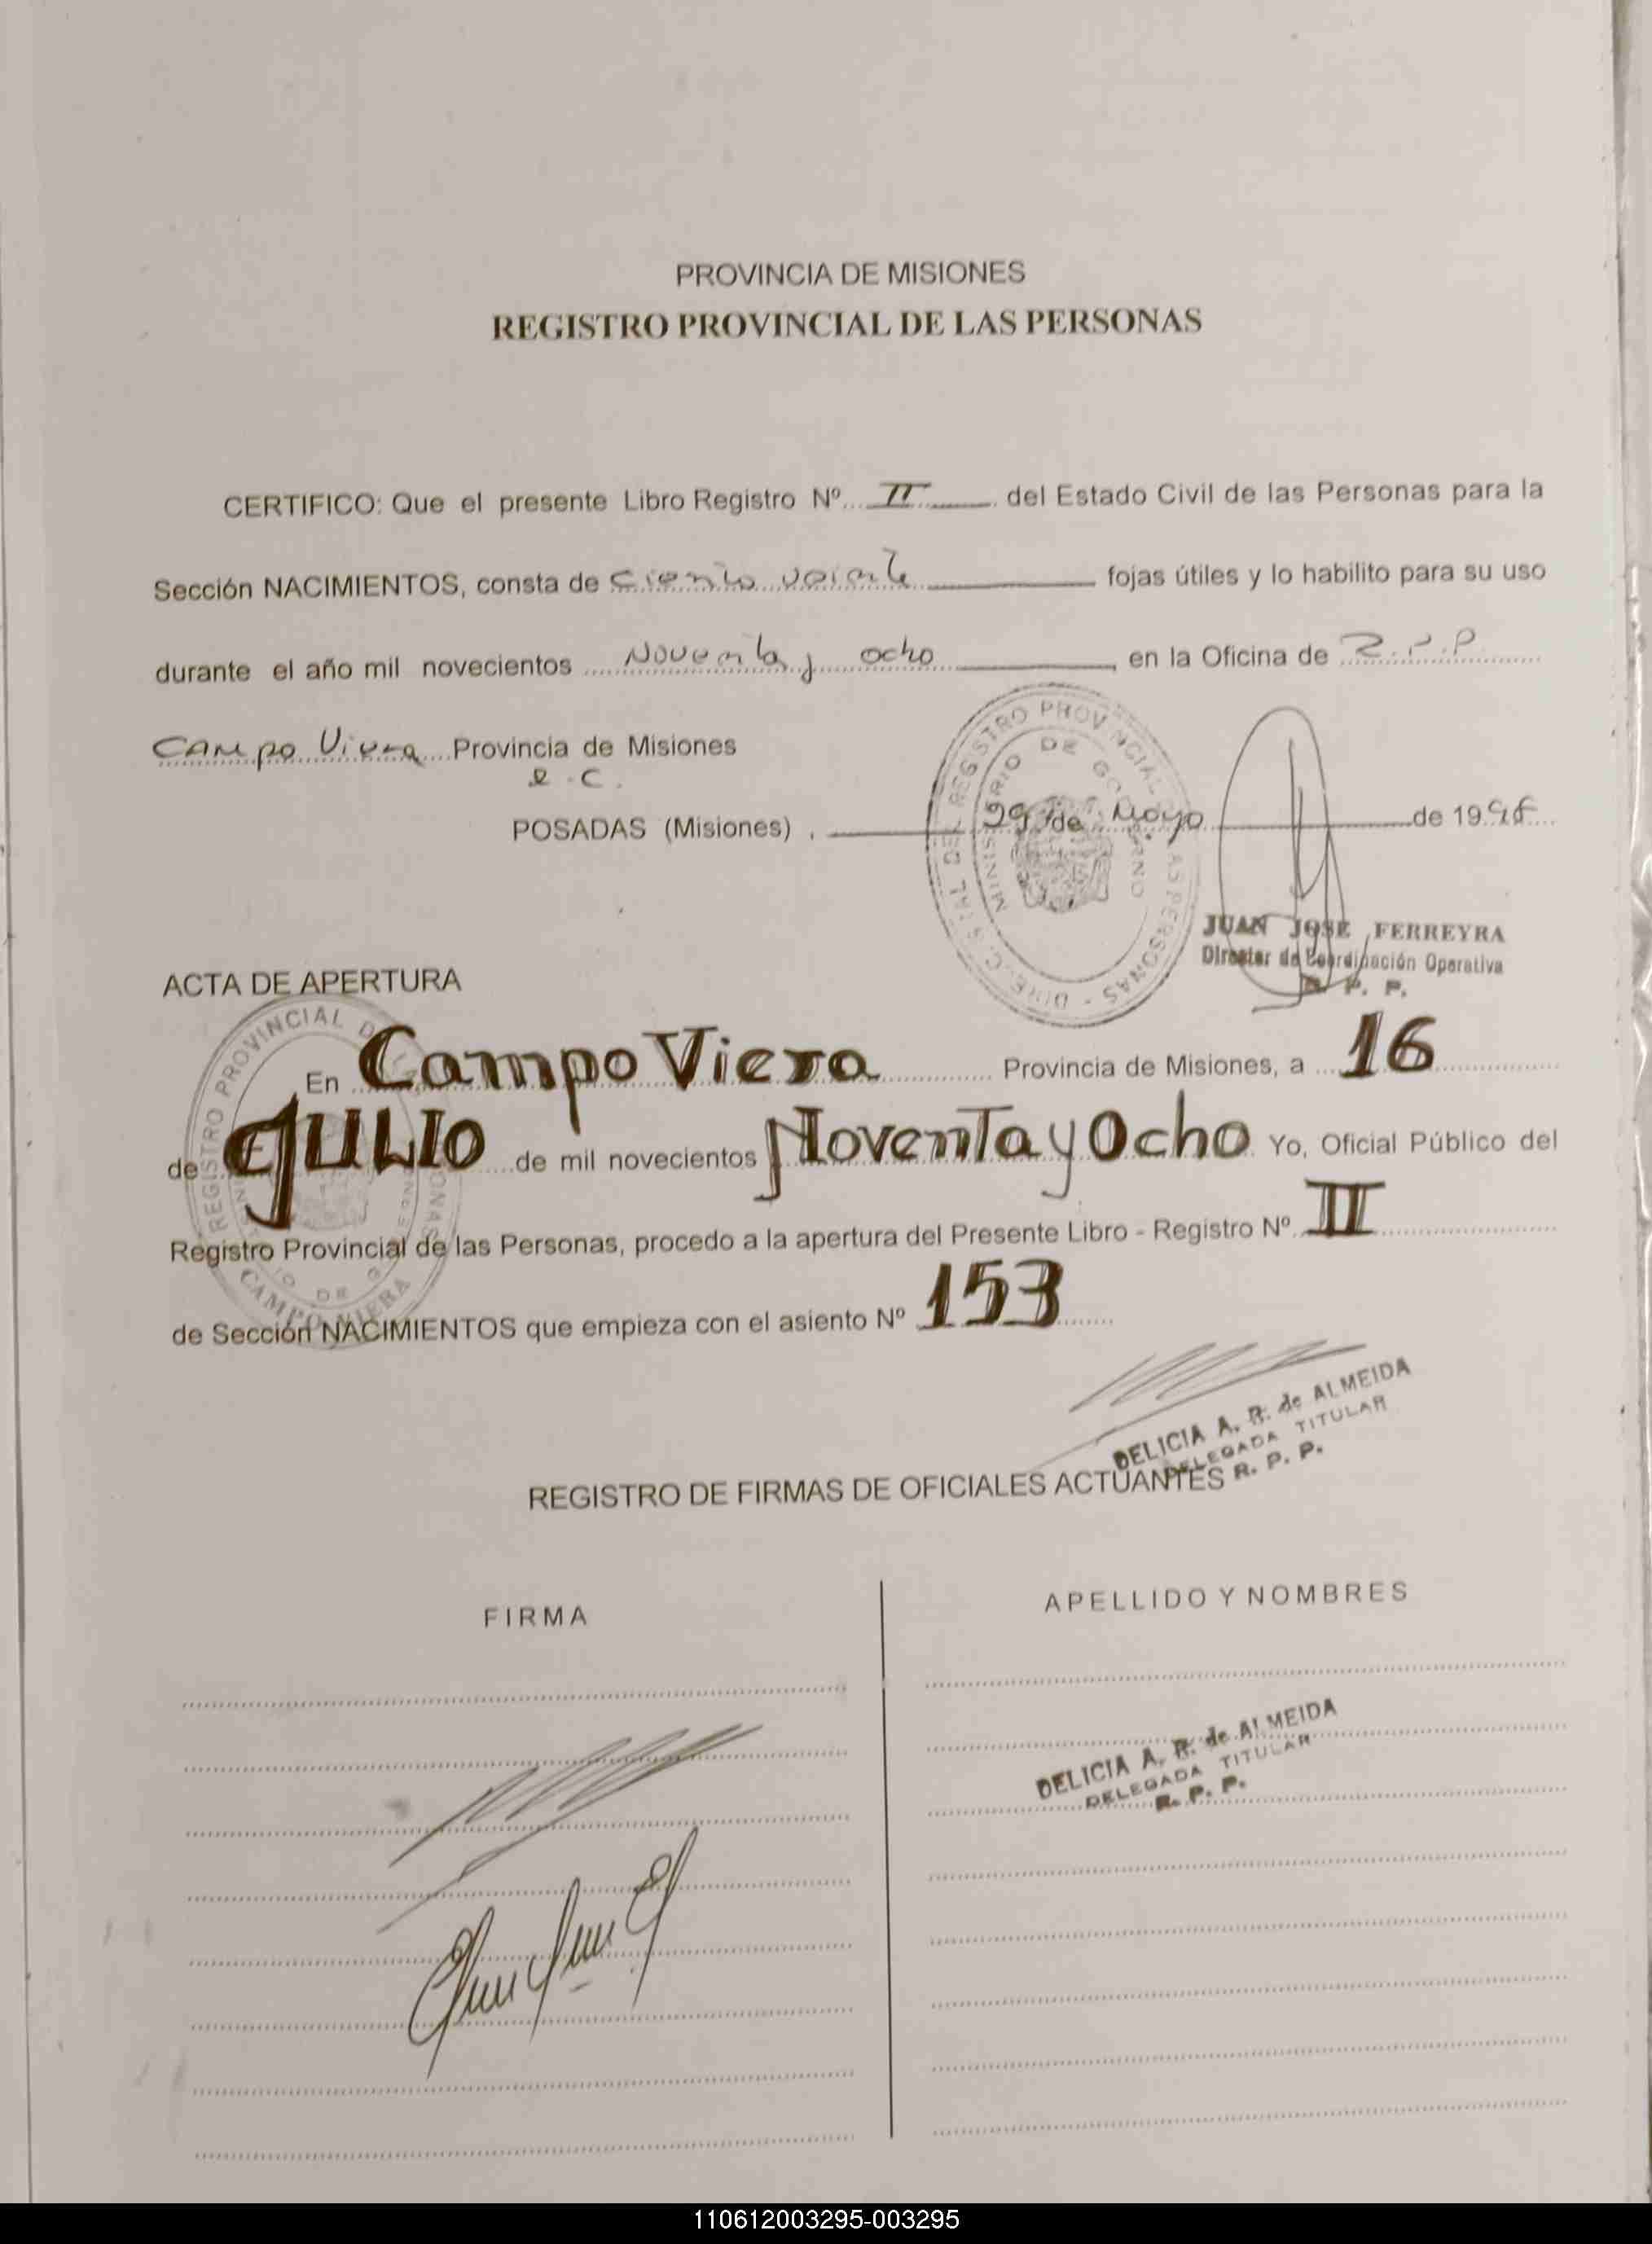 PROVINCIA DE MISIONES
REGISTRO PROVINCIAL DE LAS PERSONAS
CERTIFICO: Que el presente Libro Registro Nº II del Estado Civil de las Personas para la
Sección NACIMIENTOS, consta de Ciento veinte fojas útiles y lo habilito para su uso
durante el año mil novecientos Noventa y ocho en la Oficina de R.P.P
Campo Viera Provincia de Misiones
POSADAS (Misiones), 29 de Mayo de 1998
JUAN JOSE FERREYRA
Director de Coordinación Operativa
R. P. P.
ACTA DE APERTURA
En Campo Viera Provincia de Misiones, a 16
de JULIO de mil novecientos Noventa y Ocho Yo, Oficial Público del
Registro Provincial de las Personas, procedo a la apertura del Presente Libro - Registro Nº II
de Sección NACIMIENTOS que empieza con el asiento Nº 153
DELICIA A. R. de ALMEIDA
DELEGADA TITULAR
R. P. P.
REGISTRO DE FIRMAS DE OFICIALES ACTUANTES
FIRMA APELLIDO Y NOMBRES
DELICIA A. R. de ALMEIDA
DELEGADA TITULAR
R. P. P.
110612003295-003295